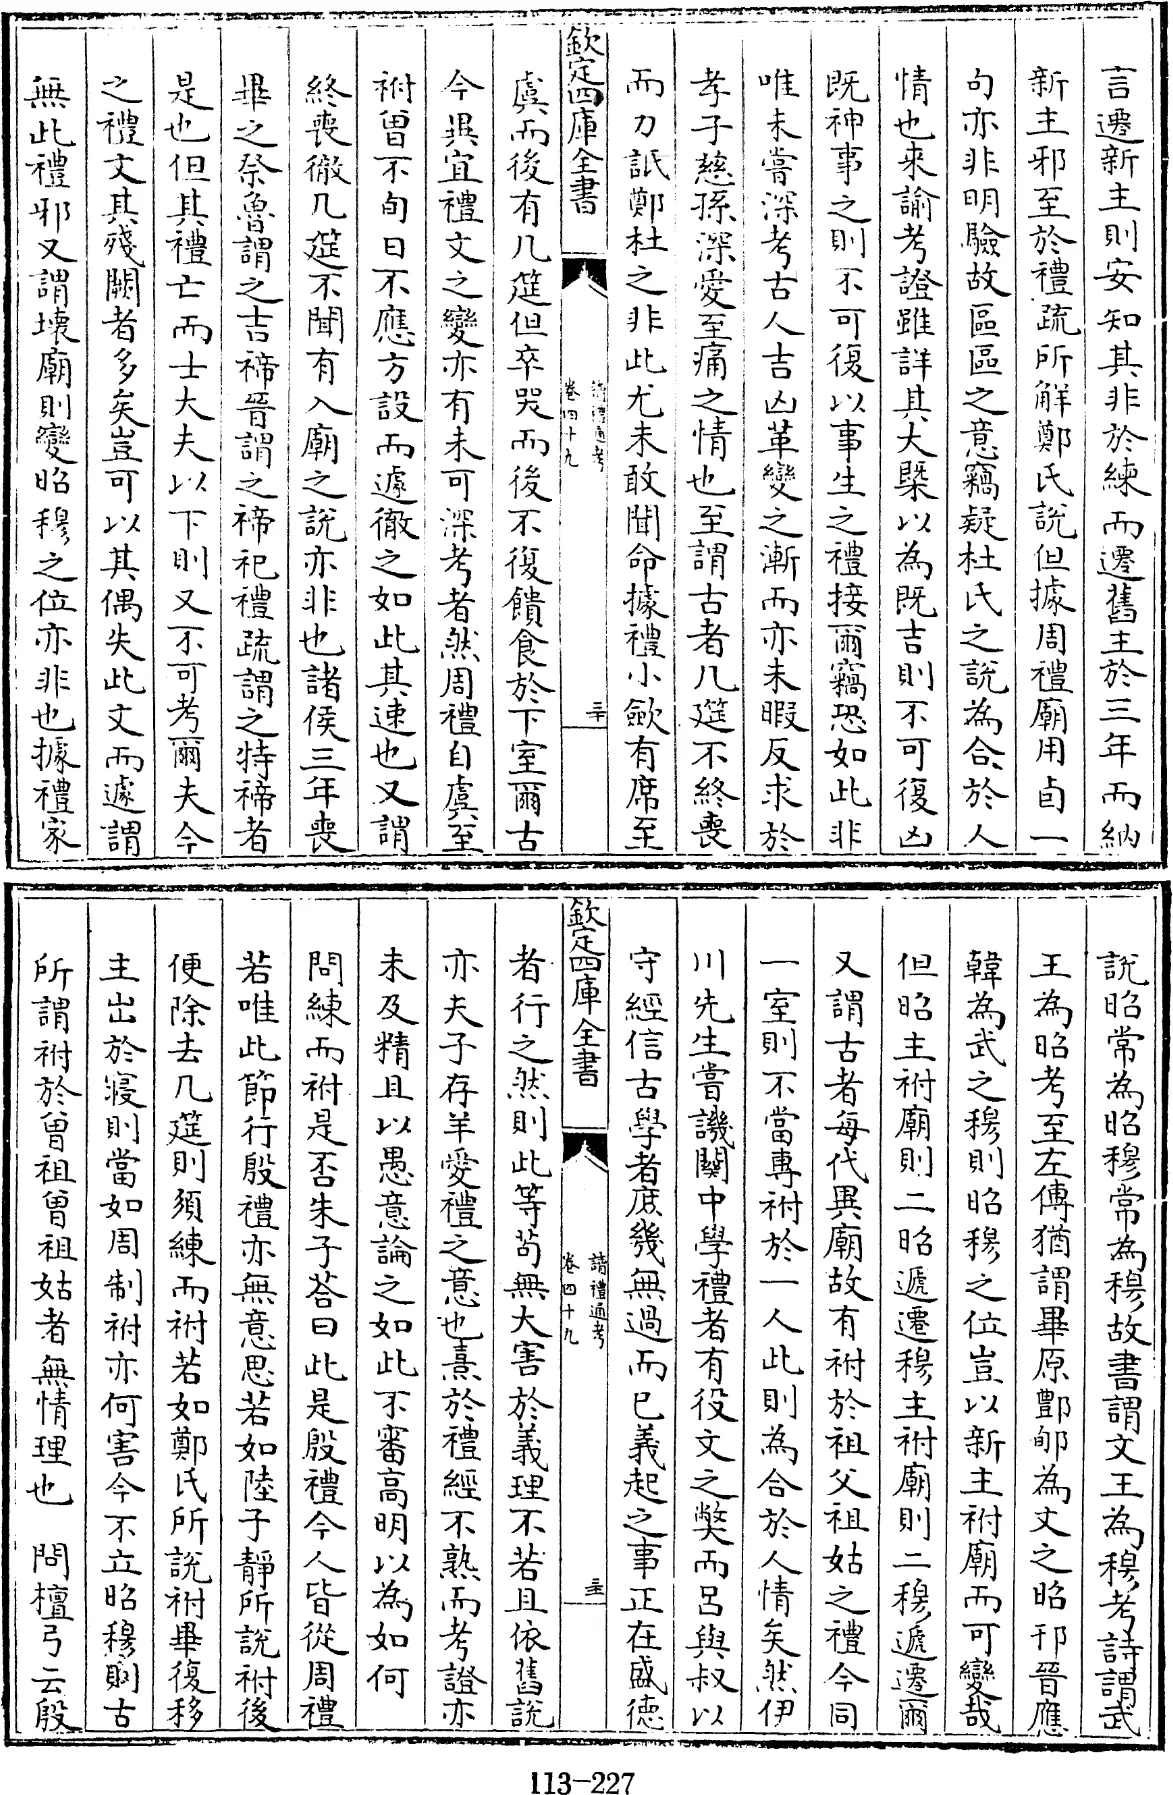 言遷新主則安知其非於練而遷舊主於三年而納
新主邪至於禮疏所解鄭氏說但據周禮廟用卣一
句亦非明驗故區區之意竊疑杜氏之說為合於人
情也來諭考證雖詳其大槩以為既吉則不可復凶
既神事之則不可復以事生之禮接爾竊恐如此非
唯未嘗深考古人吉凶革變之漸而亦未暇反求於
孝子慈孫深愛至痛之情也至謂古者几筵不終喪
而力詆鄭杜之非此尤未敢聞命據禮小歛有席至
欽定四庫全書
讀禮通考
卷四十九
三十
虞而後有几筵但卒哭而後不復饋食於下室爾古
今異宜禮文之變亦有未可深考者然周禮自虞至
祔曾不旬日不應方設而遽徹之如此其速也又謂
終喪徹几筵不聞有入廟之說亦非也諸侯三年喪
畢之祭魯謂之吉禘晉謂之禘祀禮疏謂之特禘者
是也但其禮亡而士大夫以下則又不可考爾夫今
之禮文其殘闕者多矣豈可以其偶失此文而遽謂
無此禮邪又謂壞廟則變昭穆之位亦非也據禮家
說昭常為昭穆常為穆故書謂文王為穆考詩謂武
王為昭考至左傳猶謂畢原酆郇為文之昭邘晉應
韓為武之穆則昭穆之位豈以新主祔廟而可變哉
但昭主祔廟則二昭遞遷穆主祔廟則二穆遞遷爾
又謂古者每代異廟故有祔於祖父祖姑之禮今同
一室則不當專祔於一人此則為合於人情矣然伊
川先生嘗譏關中學禮者有役文之獘而呂與叔以
守經信古學者庶幾無過而已義起之事正在盛德
欽定四庫全書
讀禮通考
卷四十九
三十一
者行之然則此等茍無大害於義理不若且依舊說
亦夫子存羊愛禮之意也熹於禮經不熟而考證亦
未及精且以愚意論之如此不審高明以為如何
問練而祔是否朱子荅曰此是殷禮今人皆從周禮
若唯此節行殷禮亦無意思若如陸子靜所說祔後
便除去几筵則須練而祔若如鄭氏所說祔畢復移
主出於寢則當如周制祔亦何害今不立昭穆則古
所謂祔於曾祖曾祖姑者無情理也　問檀弓云殷
113-227